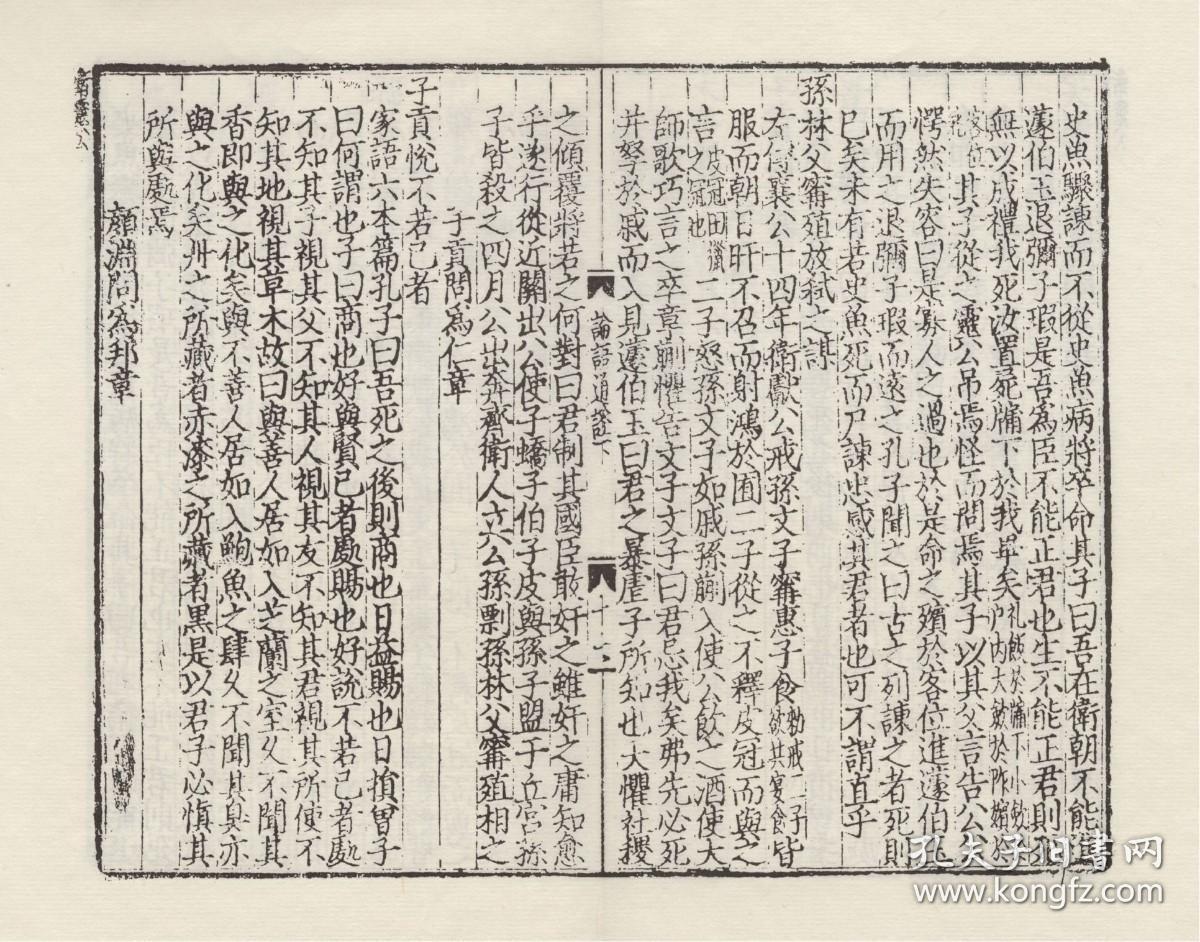 史魚驟諫而不從史魚病將卒命其子曰吾在衛朝不能進
蘧伯玉退彌子瑕是吾為臣不能正君也生不能正君則死
無以成禮我死汝置屍牖下於我畢矣礼飯於牖下小斂
戶内大斂於阼殯於
客位
其子從之靈公吊焉怪而問焉其子以其父言告公公
愕然失容曰是寡人之過也於是命之殯於客位進蘧伯玉
而用之退彌子瑕而遠之孔子聞之曰古之列諫之者死則
已矣未有若史魚死而尸諫忠感其君者也可不謂直乎
孫林父甯殖放弒之謀
左傳襄公十四年衛獻公戒孫文子甯惠子食勑戒二子
欲共宴食皆
服而朝日旰不召而射鴻於囿二子從之不釋皮冠而與之
言皮冠田獵
之冠也二子怒孫文子如戚孫蒯入使公飲之酒使大
師歌巧言之卒章蒯懼告文子文子曰君忌我矣弗先必死
并孥於戚而入見蘧伯玉曰君之暴虐子所知也大懼社稷
論語通證下
十二
之傾覆將若之何對曰君制其國臣敢奸之雖奸之庸知愈
乎遂行從近關出公使子蟜子伯子皮與孫子盟于丘宮孫
子皆殺之四月公出奔齊衛人立公孫剽孫林父甯殖相之
子貢問為仁章
子貢悅不若己者
家語六本篇孔子曰吾死之後則商也日益賜也日損曾子
曰何謂也子曰商也好與賢己者處賜也好說不若己者處
不知其子視其父不知其人視其友不知其君視其所使不
知其地視其草木故曰與善人居如入芝蘭之室久不聞其
香即與之化矣與不善人居如入鮑魚之肆久不聞其臭亦
與之化矣丹之所藏者赤漆之所藏者黑是以君子必慎其
所與處焉
顏淵問為邦章
孔夫子旧书网
www.kongfz.com